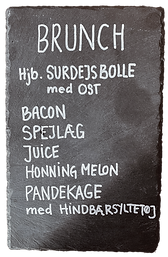 BRUNCH
Hjb. SURDEJSBOLLE
med OST
BACON
SPEJLÆG
JUICE
HONNING MELON
PANDEKAGE
med HINDBÆRSYLTETØJ